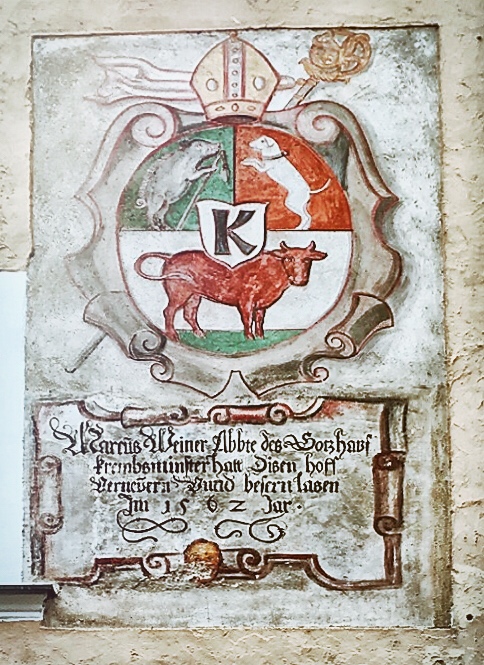 K
Marcus Weiner Abbte des Gotzhaus
krembsmünster hatt Disen hoff
Verneüern Vnnd besern lasen
Im 1562 Jar.